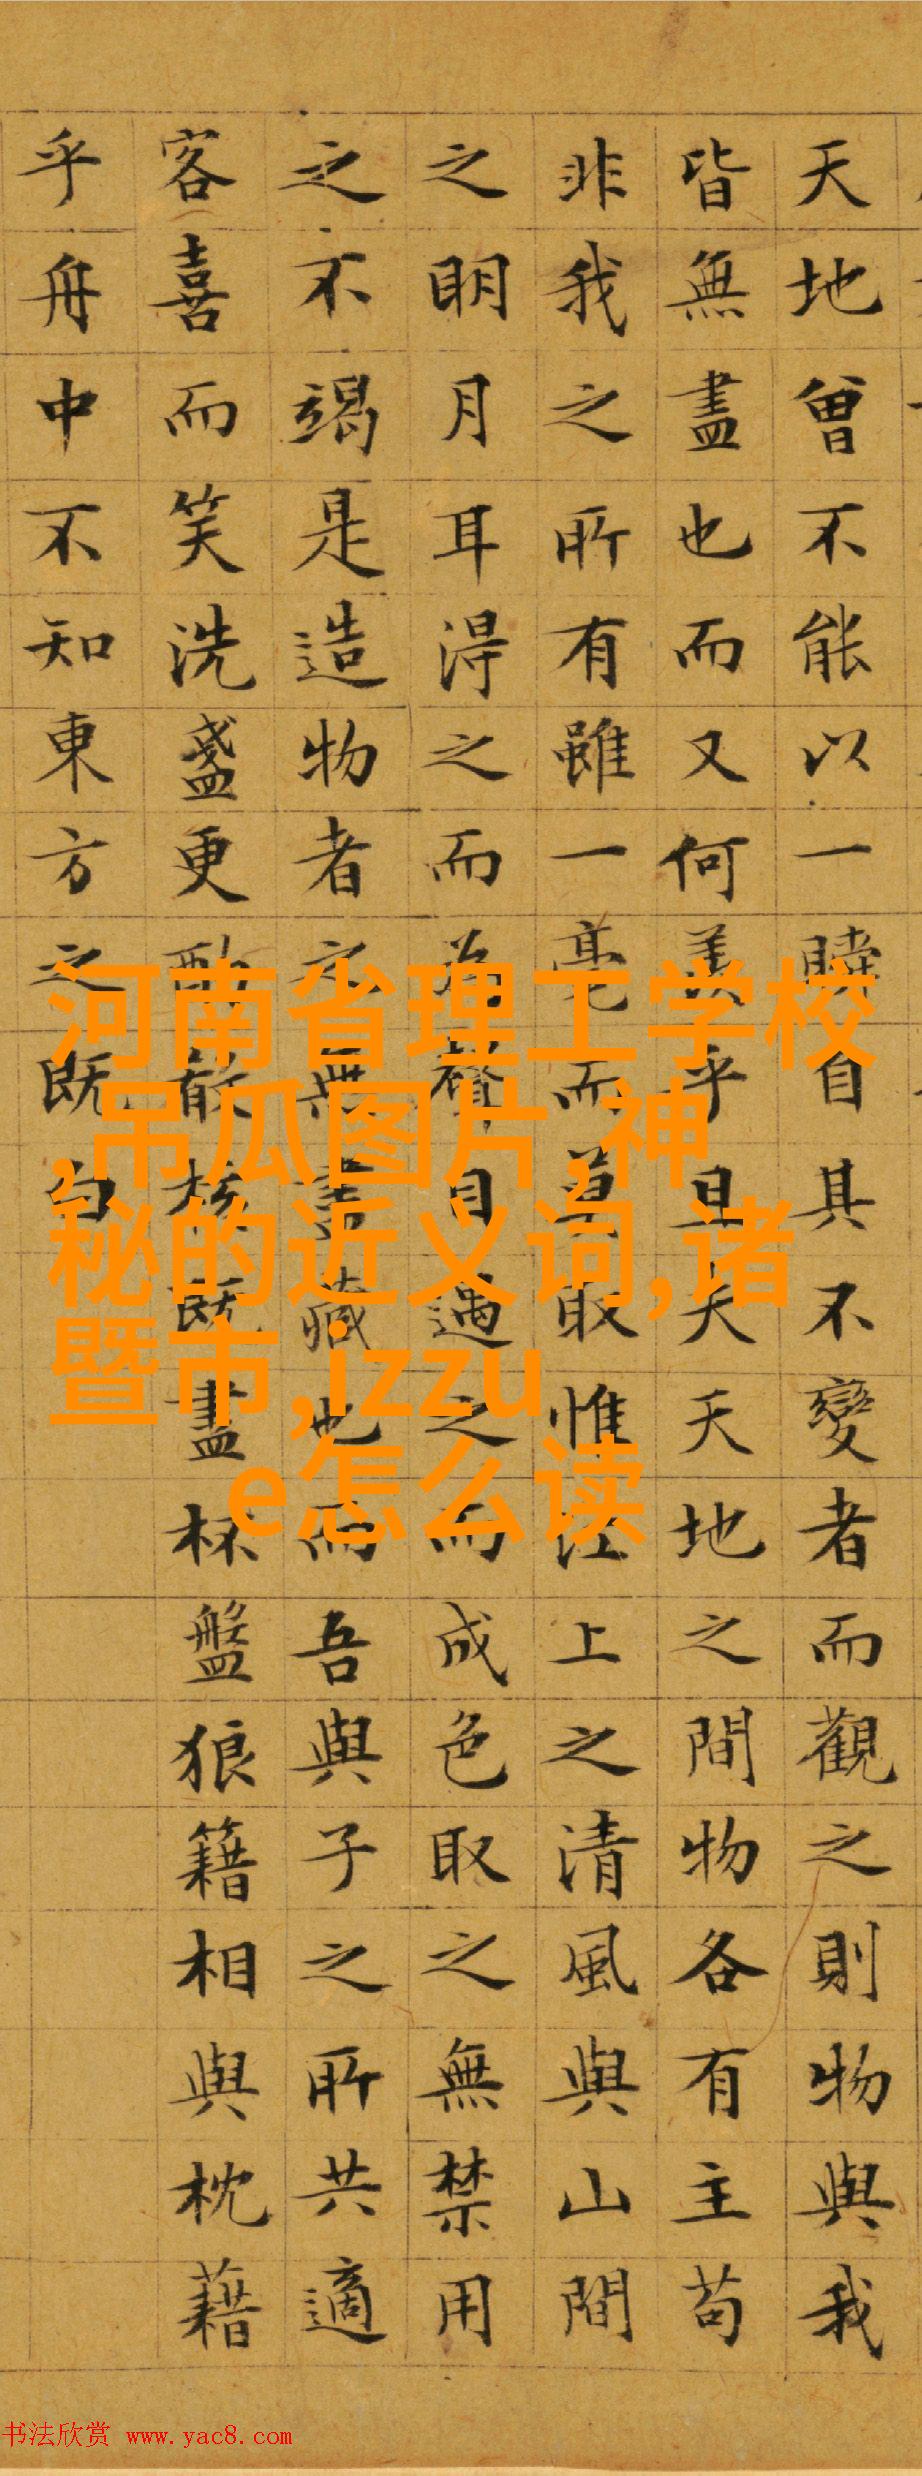 天地曾不能以一瞬自其不變者而觀之則物與我
皆無盡也而又何羨乎且夫天地之間物各有主苟
非我之所有雖一毫而莫取惟江上之清風與山間
之明月耳得之而為聲目遇之而成色取之無禁用
之不竭是造物者之無盡藏也而吾與子之所共適
客喜而笑洗盞更酌殽核既盡杯盤狼籍相與枕藉
乎舟中不知東方之既白
河南省理工学校
,吊瓜图片,神
秘的近义词,诸
暨市,izzu
e怎么读
书法欣赏 www.yac8.com